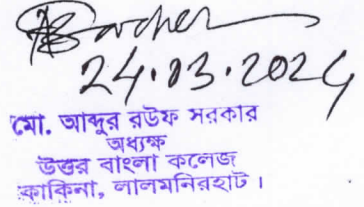 24.03.2024
মো. আব্দুর রউফ সরকার
অধ্যক্ষ
উত্তর বাংলা কলেজ
কাকিনা, লালমনিরহাট।